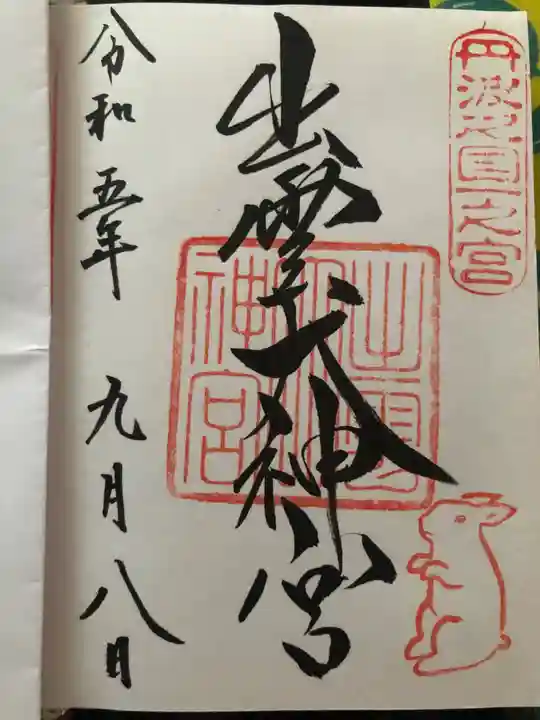 丹波國一之宮
出雲大神宮
出雲大神宮
令和五年 九月八日